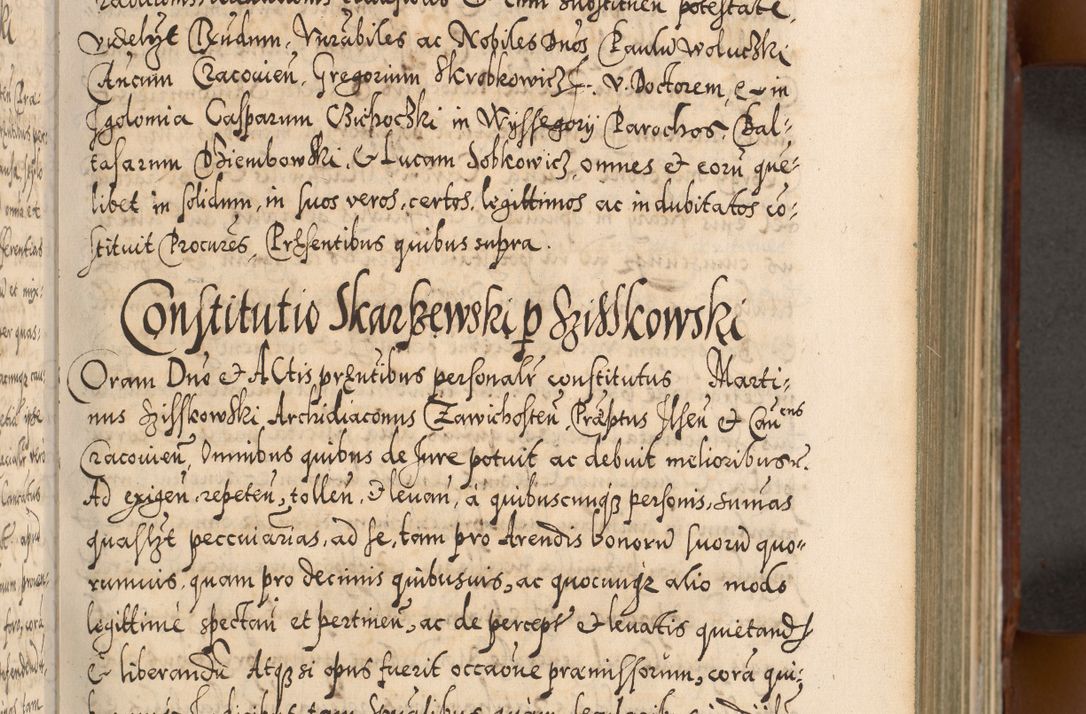 videlꝫt Rndum, Vnrabiles ac Nobiles Dnos Paulū Woluczki
Ancum Cracouien̄, Gregorium Skrobkowicz J. V. Doctorem, et in
Igolomia Casparum Czichoczki in Wyssegory Parochos, Bal-
tasarum Dziembowski, & Lucam Sobkowicz, omnes et eorū que-
libet in solidum, in suos veros, certos, legittimos ac indubitatos cō-
stituit Procures, Pręsentibus quibus supra.
Constitutio Skarszewski p Szisskowski
Coram Dnō & Actis pręntibus personalr̄ constitutus Marti-
nus Szisskowski Archidiaconus Zawichosten̄, Præptus Ilsen̄ & Canens
Cracouien̄, Omnibus quibus de Jure potuit ac debuit melioribus r.
Ad exigen̄, repeten̄, tollen̄, & leuan̄, à quibuscunqꝫ personis, sum̄as
quaslꝫt peccuiārias, ad se, tam pro Arendis bonorū suorū quo-
rumuis, quam pro decimis quibusuis, ac quocunqꝫ alio modo
legittimè spectan̄ et pertinen̄, ac de percept & leuattis quietand
& liberandū Atqꝫ si opus fuerit occaōne præmissorum, corā qui-